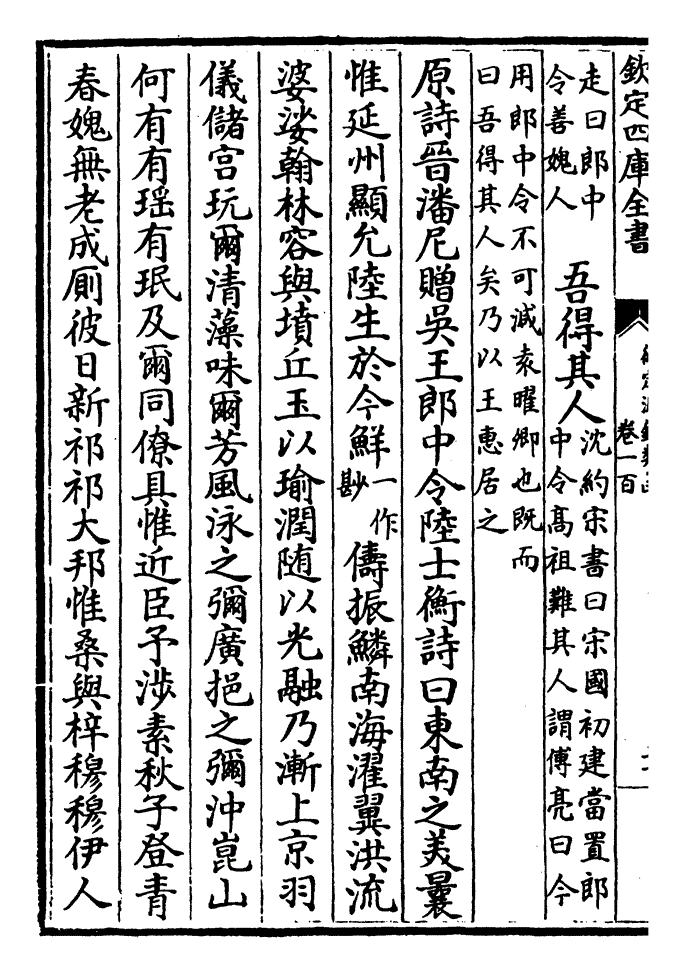 欽定四庫全書
卷一百
走曰郎中
令善媿人
吾得其人
沈約宋書曰宋國初建當置郎
中令高祖難其人謂傅亮曰今
用郎中令不可減袁曜卿也既而
曰吾得其人矣乃以王惠居之
原詩晉潘尼贈吳王郎中令陸士衡詩曰東南之美曩
惟延州顯允陸生於今鮮一作尠儔振鱗南海濯翼洪流
婆娑翰林容與墳丘玉以瑜潤随以光融乃漸上京羽
儀儲宫玩爾清藻味爾芳風泳之彌廣挹之彌沖崑山
何有有瑶有珉及爾同僚具惟近臣予涉素秋子登青
春媿無老成厠彼日新祁祁大邦惟桑與梓穆穆伊人